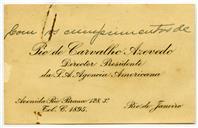 Com os cumprimentos de
Pio de Carvalho Azevedo
Director Presidente
da S. A. Agencia Americana
Avenida Rio Branco 128, 3º
Tel. C. 1895.
Rio de Janeiro